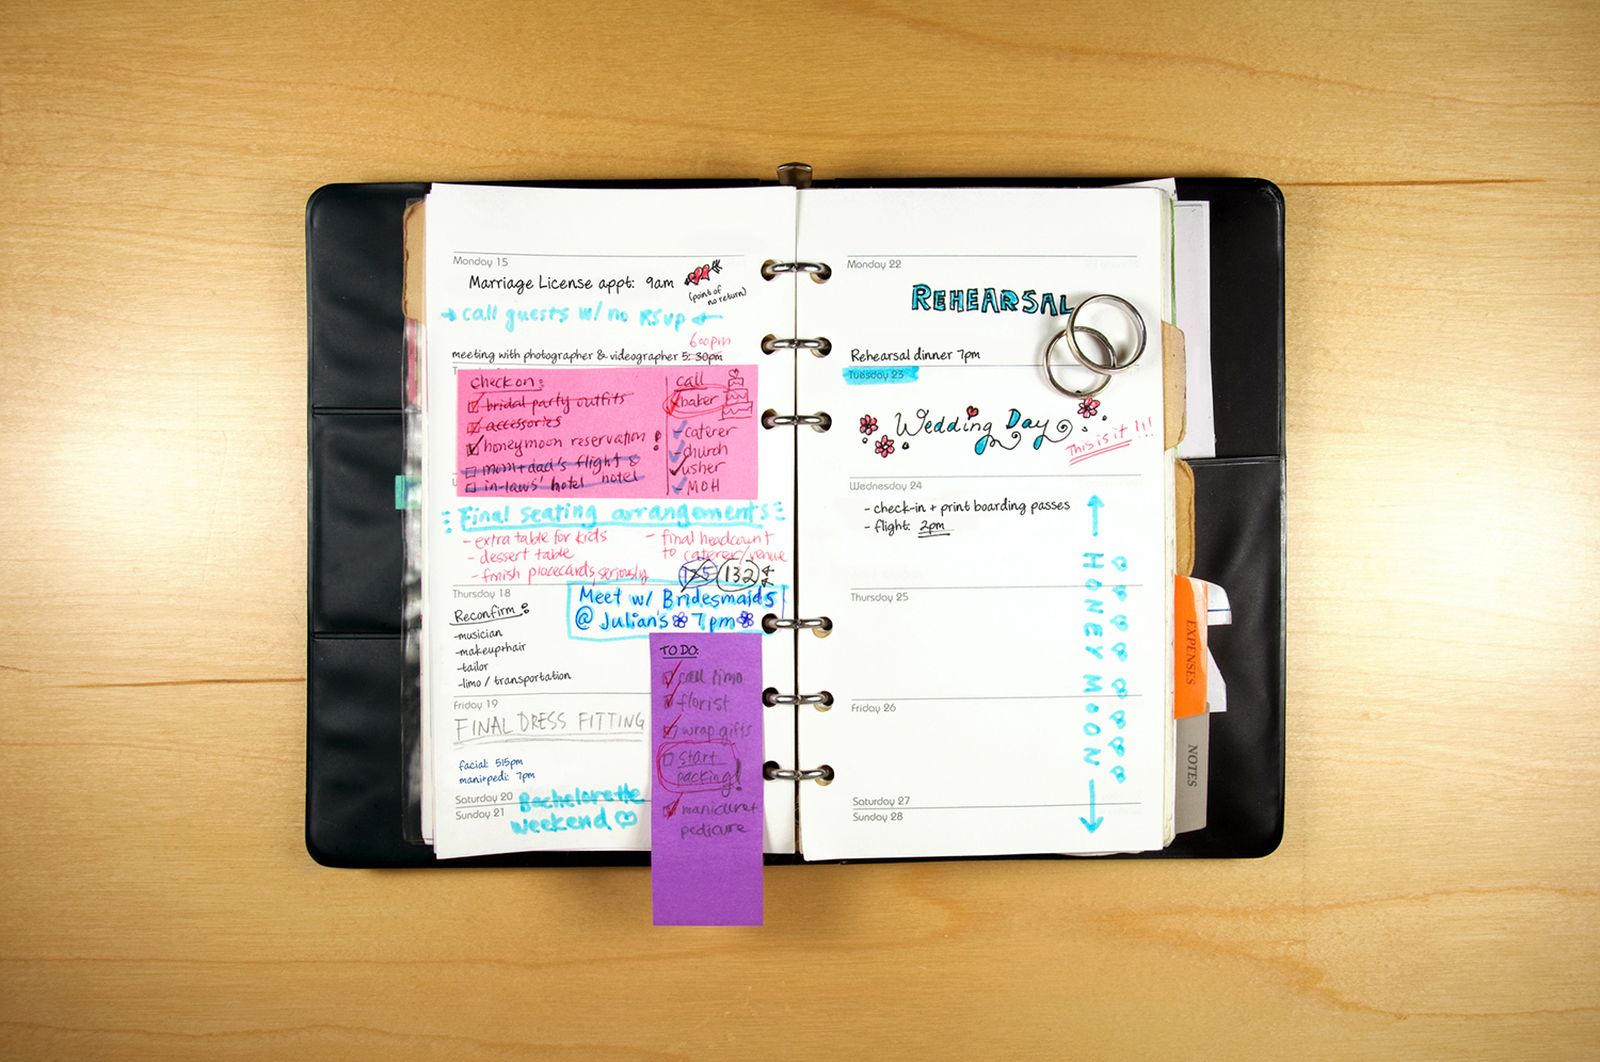 Monday 15
Marriage License appt: 9am
(point of
no return)
call guests w/ no RSVP
6:00pm
meeting with photographer & videographer 5:30pm
check on:
bridal party outfits
accessories
honeymoon reservation!
mom+dad's flight &
in-laws' hotel hotel
call
baker
caterer
church
usher
MOH
Final seating arrangements
- extra table for kids
- dessert table
- finish placecards, seriously
- final headcount
to caterer/venue
125 132
Thursday 18
Meet w/ Bridesmaids
@ Julian's 7pm
Reconfirm:
-musician
-makeup+hair
-tailor
-limo / transportation
Friday 19
FINAL DRESS FITTING
facial: 515pm
mani+pedi: 7pm
Saturday 20
Sunday 21
Bachelorette
weekend
TO DO:
call limo
florist
wrap gifts
start
packing!
manicure+
pedicure
Monday 22
REHEARSAL
Rehearsal dinner 7pm
Tuesday 23
Wedding Day
This is it!!!
Wednesday 24
- check-in + print boarding passes
- flight: 2pm
HONEY MOON
Thursday 25
Friday 26
Saturday 27
Sunday 28
EXPENSES
NOTES